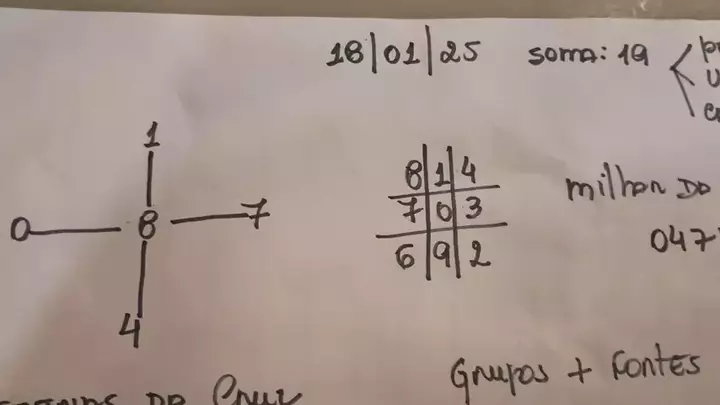 18|01|25 soma: 19
1
0 8 7
4
8|1|4
7|0|3
6|9|2
milhar do
047
Grupos + Fontes
do Cruz